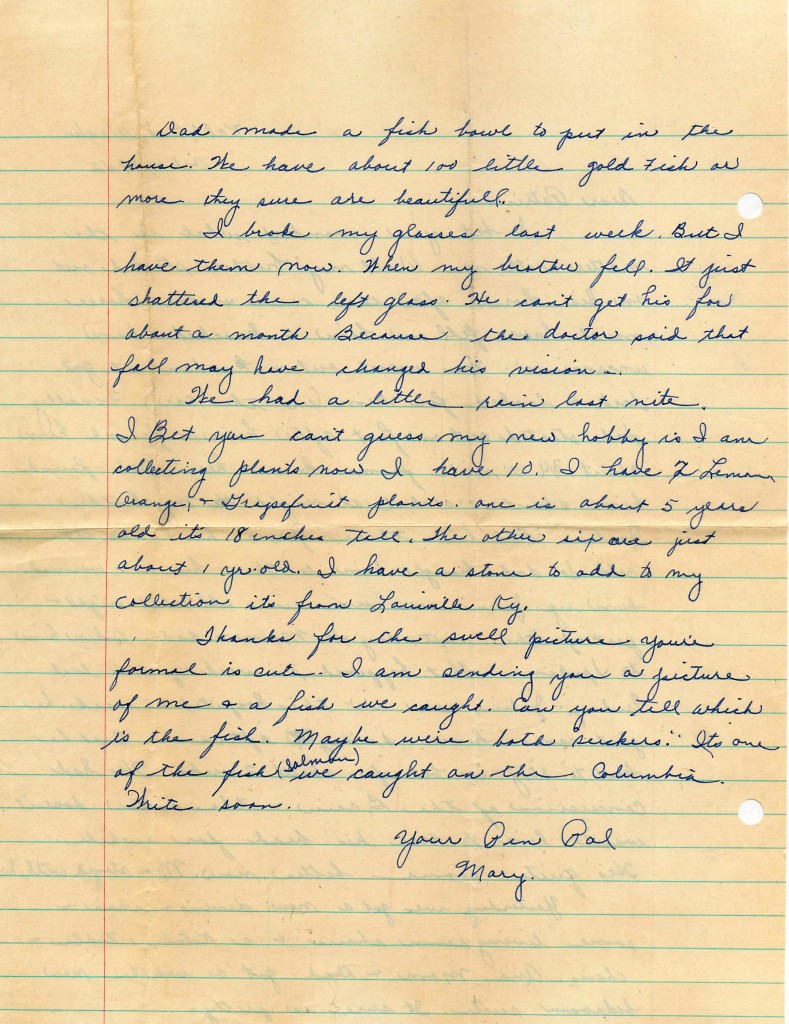 Dad made a fish bowl to put in the
house. We have about 100 little gold Fish or
more they sure are beautifull.
I broke my glasses last week. But I
have them now. When my brother fell. It just
shattered the left glass. He can't get his for
about a month Because the doctor said that
fall may have changed his vision.
We had a little rain last nite.
I Bet you can't guess my new hobby is I am
collecting plants now I have 10. I have 7 Lemon,
Orange, & Grapefruit plants. one is about 5 years
old its 18 inches tall. The other six are just
about 1 yr. old. I have a stone to add to my
collection its from Louiville Ky.
Thanks for the swell picture you're
formal is cute. I am sending you a picture
of me & a fish we caught. Can you tell which
is the fish. Maybe we're both "suckers". Its one
of the fish (Salmon) we caught on the Columbia.
Write soon.
Your Pen Pal
Mary.